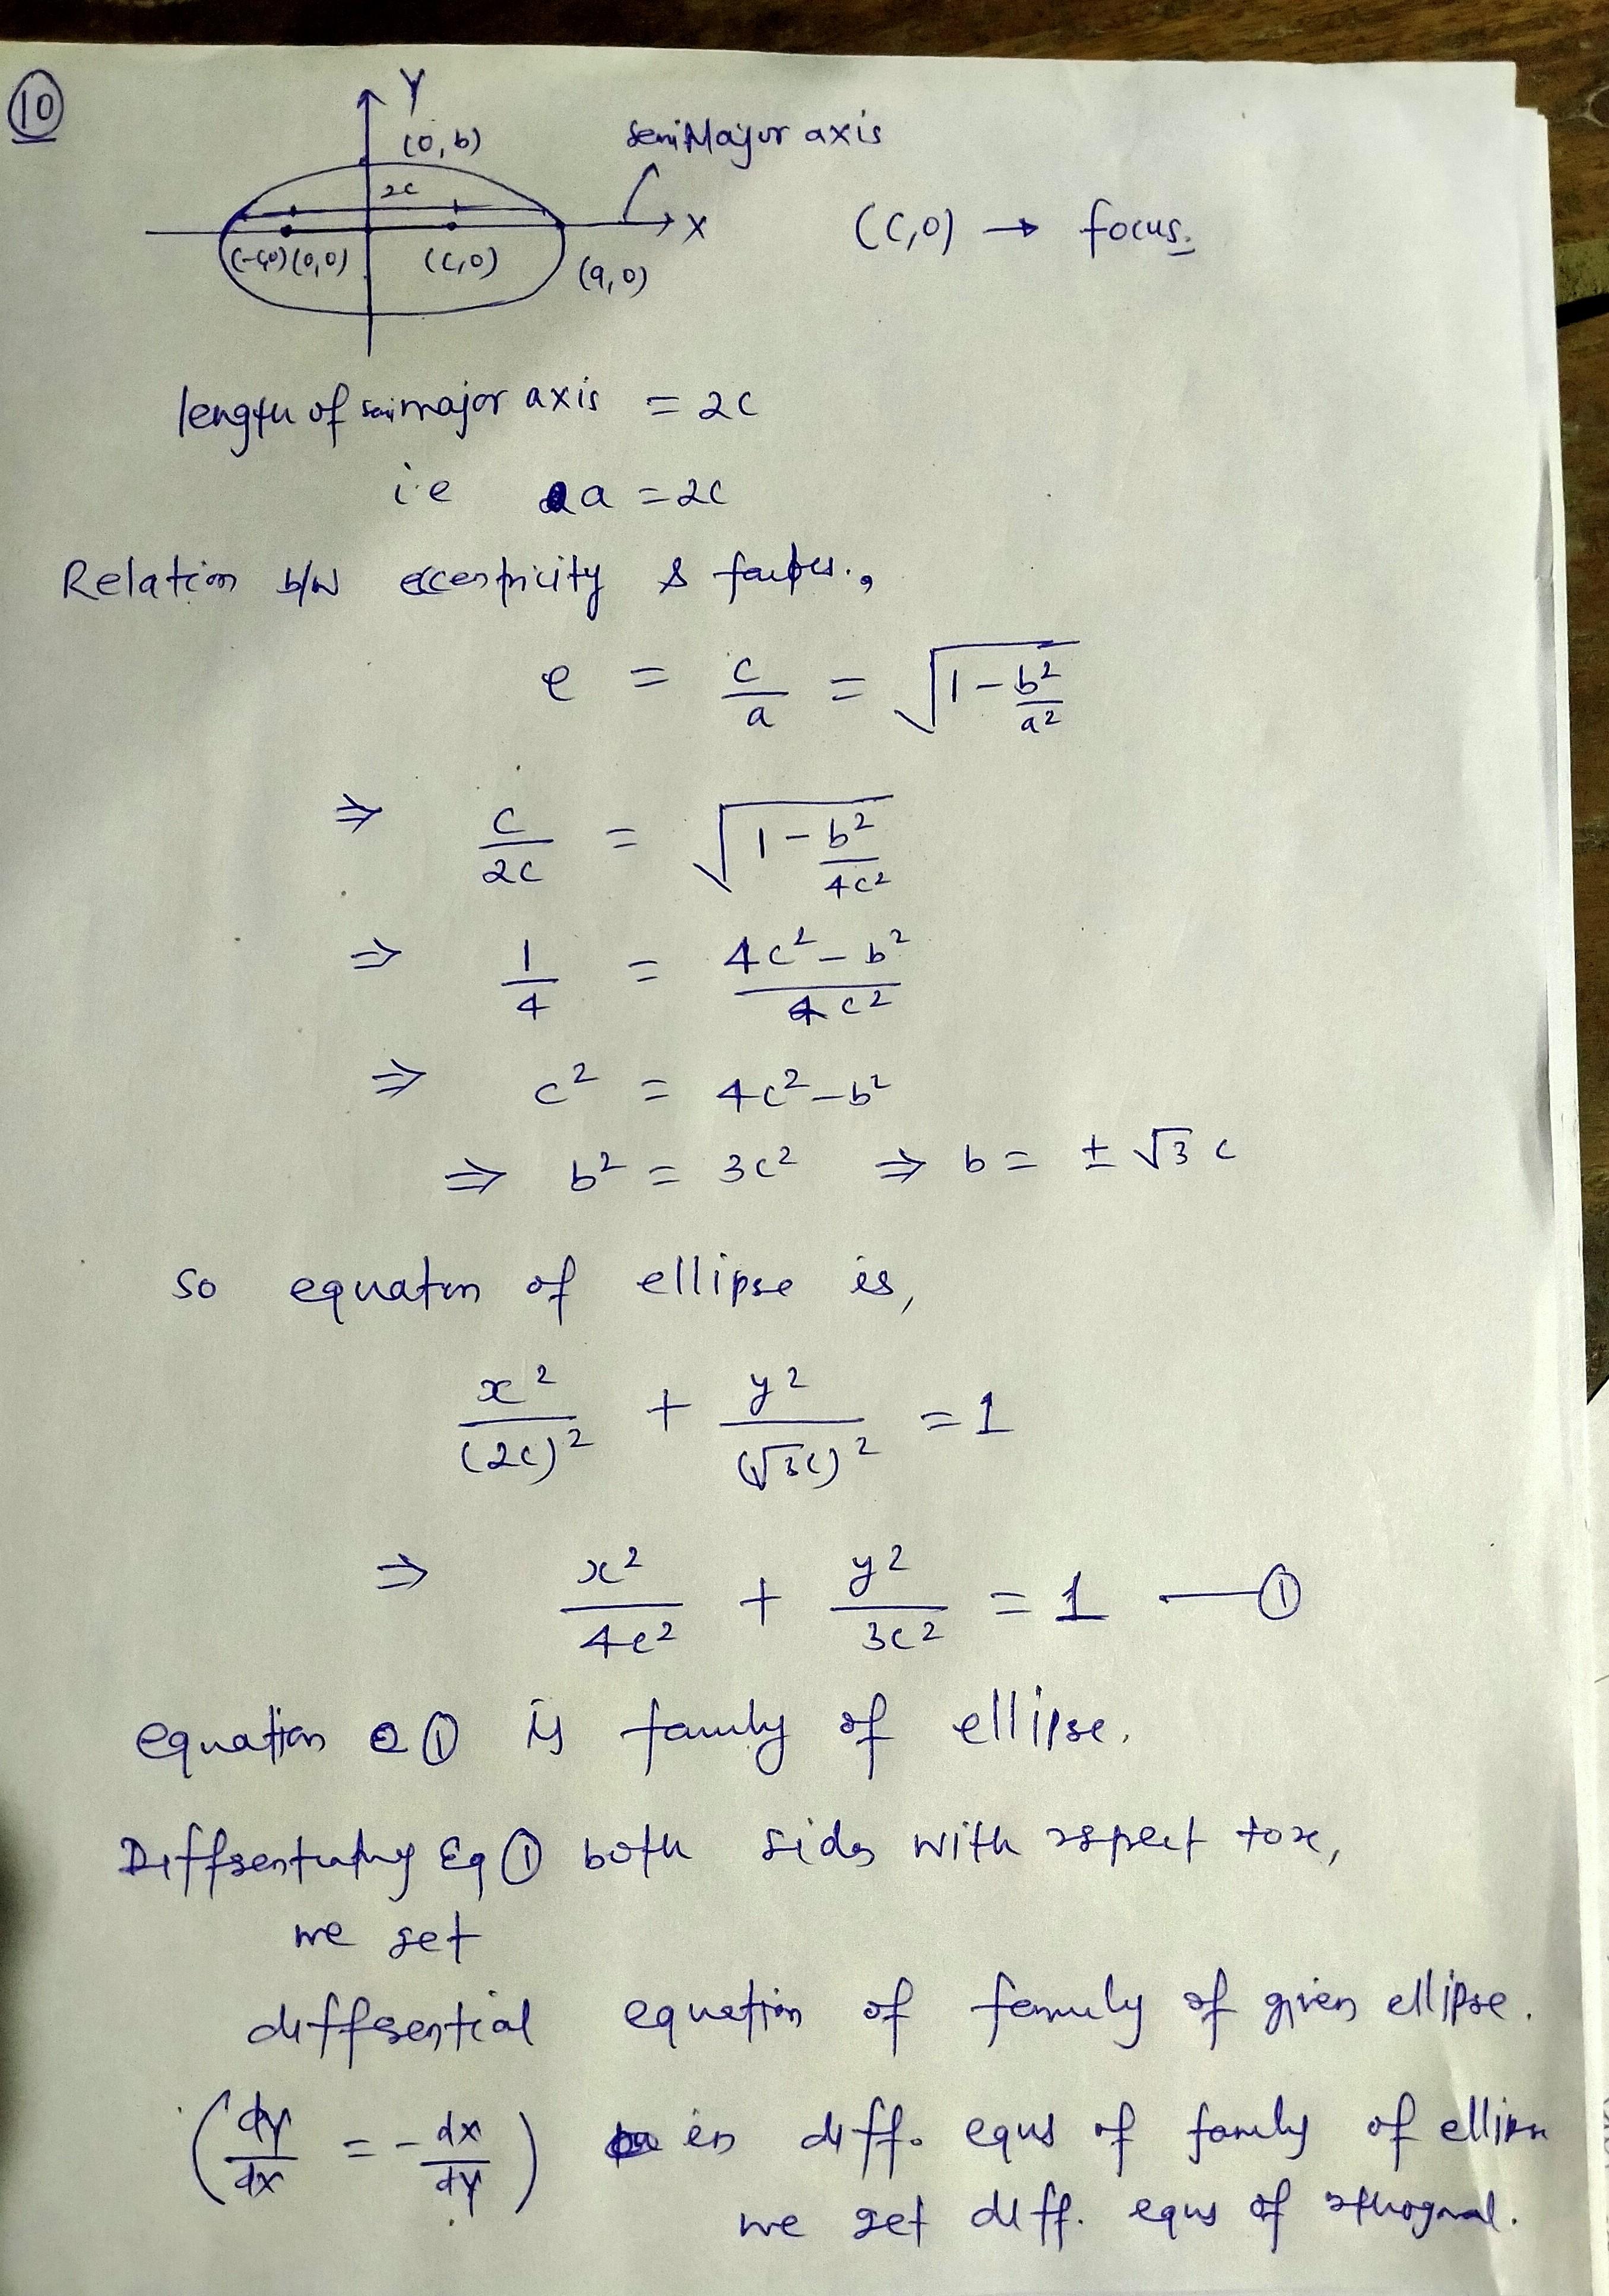 10
Y
(0, b)
semi Major axis
2c
X
(c,0) → focus.
(-c,0) (0,0) (c,0) (a,0)
length of semi major axis = 2c
i.e a = 2c
Relation b/w eccentricity &
e = c/a = √(1 - b²/a²)
⇒ c/2c = √(1 - b²/4c²)
⇒ 1/4 = (4c² - b²)/4c²
⇒ c² = 4c² - b²
⇒ b² = 3c² ⇒ b = ± √3 c
so equation of ellipse is,
x²/(2c)² + y²/(√3c)² = 1
⇒ x²/4c² + y²/3c² = 1 — ①
equation ① is family of ellipse.
Differentiating Eq ① both sides with respect to x,
we get
differential equation of family of given ellipse.
(dy/dx = - dx/dy) in diff. equs of family of ellipse
we get diff. equs of orthogonal.